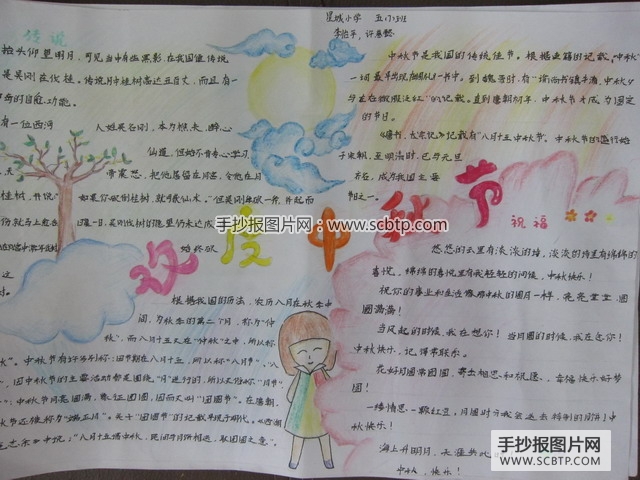 传说
抬头仰望明月，可见当中有些黑影，在我国经传统
是吴刚在伐桂。传说月中桂树高达五百丈，而且有一
奇的自愈功能。
有一位西河
人姓吴名刚，本为樵夫，醉心
仙道，但始终不肯专心学习，
把他居留在月宫，令他在月
如果你砍倒桂树，就可获仙术。
吴刚伐桂树的愿望仍未达成
始终砍
根据我国的历法，农历八月在秋季中
间，为秋季的第二个月，称为“仲
秋”，而八月十五又在“仲秋”之中，所以称
”。中秋节有许多别称：因节期在八月十五，所以称“八月节”、“八
因中秋节的主要活动都是围绕“月”进行的，所以又俗称“月节”、
中秋节月亮圆满，象征团圆，因而又叫“团圆节”。在唐朝，
秋节还被称为“端正月”。关于“团圆节”的记载
中说：“八月十五谓中秋，民间以月饼相送，取团圆之意”。
星城小学 五（7）班
欢度中秋节
中秋节是我国的传统佳节。根据史籍的记载，“中秋”
一词最早出现在《周礼》一书中。到魏晋时，有“谕尚书镇牛淆，中秋夕
与左右微服泛江”的记载。直到唐朝初年，中秋节才成为固定
的节日。
《唐书·太宗记》记载有“八月十五中秋节”。中秋节的盛行始
于宋朝，至明清时，已与元旦
齐名，成为我国主要
节日之一。
祝福
悠悠的云里有淡淡的诗，淡淡的诗里有绵绵的
喜悦，绵绵的喜悦里有我轻轻的问候，中秋快乐！
祝你的事业和生活像那中秋的圆月一样，亮亮堂堂，圆
圆满满！
当风起的时候，我在想你！当月圆的时候，我在念你！
中秋快乐，记得常联系。
花好月圆常团圆，寄出相思和祝愿、幸福快乐好梦
圆！
一缕情思一颗红豆，月圆时分我会送去特制的月饼！中
秋快乐！
海上升明月，天涯共此时
中秋，快乐！
手抄报图片网
www.scbtp.com
手抄报图片网
WWW.SCBTP.COM